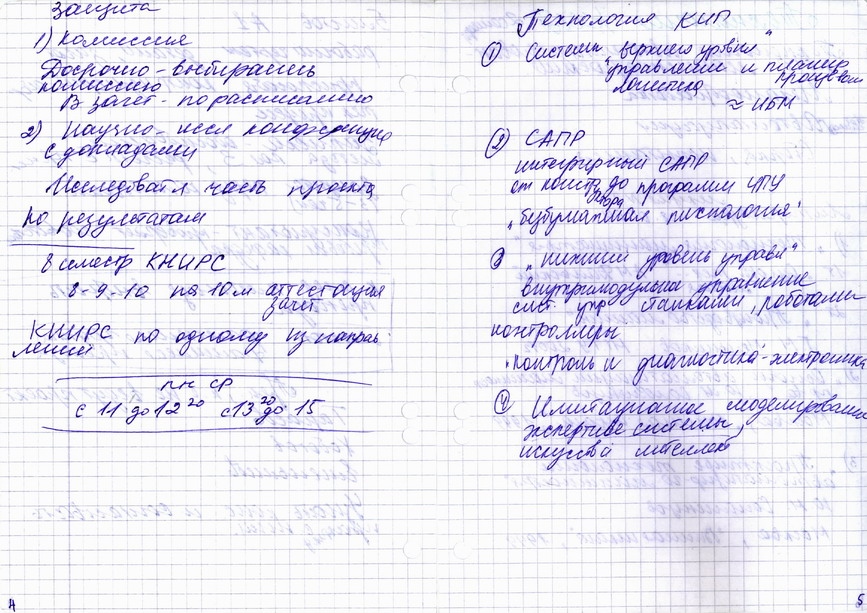 Защита
1) Комиссия
Досрочно - выбираешь
комиссию
В зачет - по расписанию
2) Научно - иссл конференция
с докладами
Исследоват часть проекта
по результатам
8 семестр КНИРС
8 - 9 - 10 на 10м аттестация
зачет
КНИРС по одному из направ
лений
пн ср
с 11 до 12²⁰ с 13²⁰ до 15
4
Технология КИП
① Системы "верхнего уровня"
"управление и планир
процессом
логистика
≈ ИБМ
② САПР
интегрирный САПР
от констр до программ ЧПУ
тора
"безбумажная технология"
3 "нижний уровень управл"
внутримодульна управление
сист упр станками, роботами
контроллеры
"контроль и диагностика" - электроника
④ Имитационное моделирование
экспертные системы
искуств интеллект
5